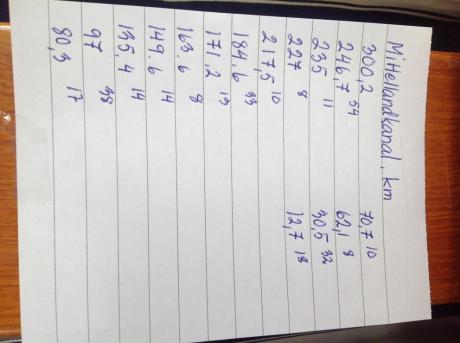 Mittellandkanal, km
300,2 70,7 10
246,7 54 62,1 8
235 11 30,5 32
227 8 12,7 18
217,5 10
184.6 33
171.2 13
163.6 8
149.6 14
135,4 14
97 38
80,3 17